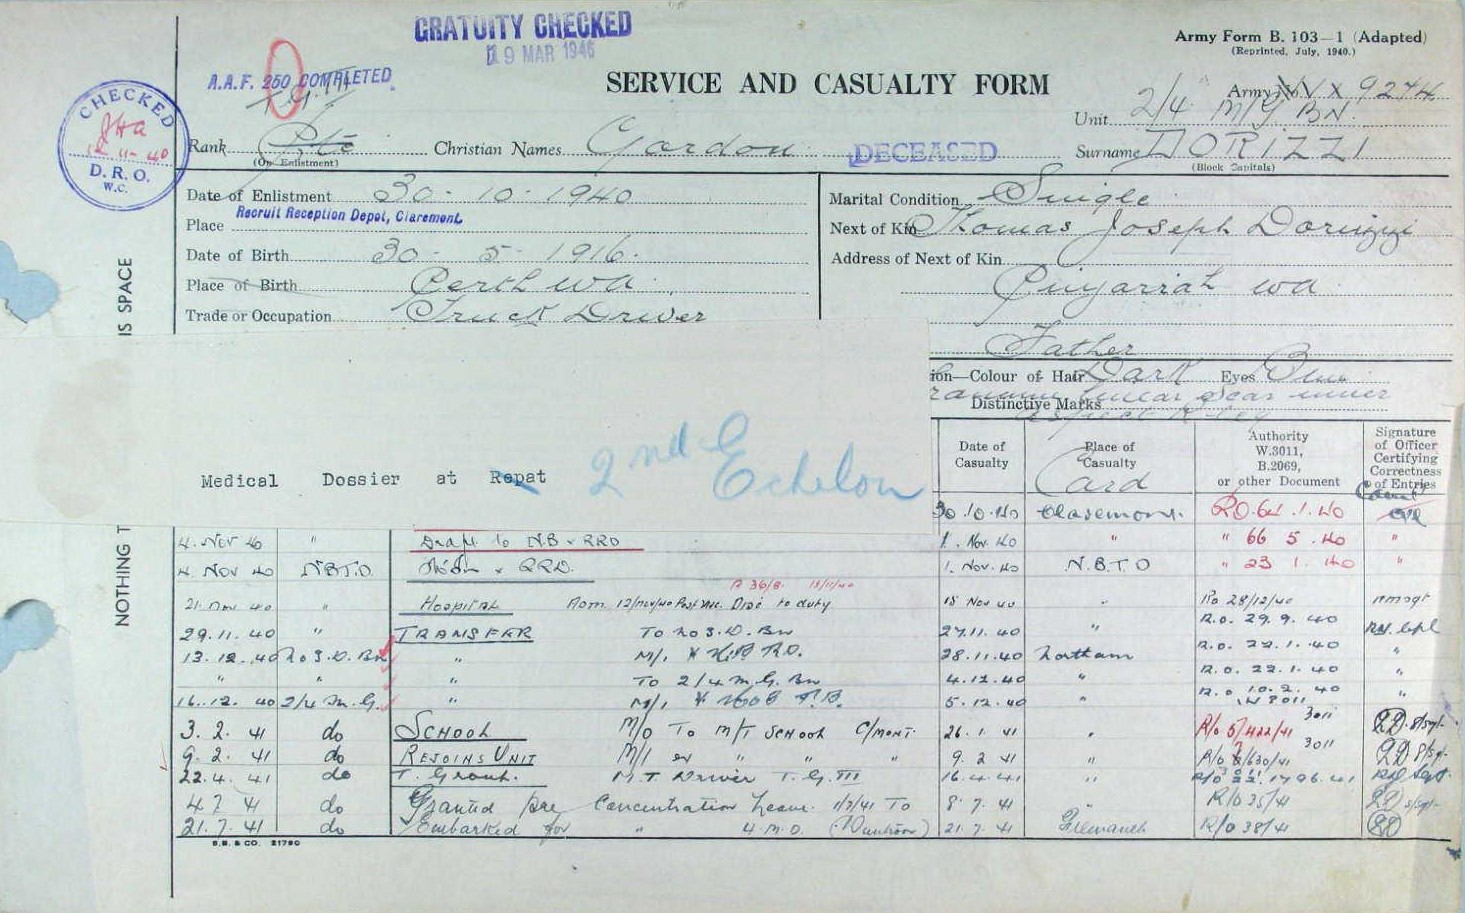 GRATUITY CHECKED
19 MAR 1946
Army Form B. 103—1 (Adapted)
(Reprinted, July, 1940.)
A.A.F. 250 COMPLETED.
SERVICE AND CASUALTY FORM
Army No. VX 9274
Unit 2/4 M/G BN.
CHECKED
11-40
D.R.O.
W.C.
Rank Pte
(On Enlistment)
Christian Names Gordon
DECEASED
Surname DORIZZI
(Block Capitals)
Date of Enlistment 30-10-1940
Place Recruit Reception Depot, Claremont.
Date of Birth 30-5-1916.
Place of Birth Perth WA
Trade or Occupation Truck Driver
Marital Condition Single
Next of Kin Thomas Joseph Dorizzi
Address of Next of Kin
Pinjarrah WA
Father
ion—Colour of Hair Dark Eyes
Distinctive Marks linear scar inner
NOTHING T
IS SPACE
Medical Dossier at Repat 2nd Echelon
Date of Casualty
Place of Casualty
Card
Authority W.3011, B.2069, or other Document
Signature of Officer Certifying Correctness of Entries
30.10.40 Claremont. RO 64.1.40
4. Nov 40 " Draft to N.B. RRD 1. Nov. 40 " " 66 5.40 "
4 Nov 40 N.B.T.D. RRD. 1. Nov. 40 N.B.T.D " 23 1.40 "
21. Nov 40 " Hospital Adm. 12/Nov/40 Disc to duty 15 Nov 40 " Ro 28/12/40
29.11.40 " TRANSFER To No 3. D. Bn 27.11.40 " R.O. 29.9.40
13.12.40 No 3. D. Bn " M/I 28.11.40 Northam R.O. 22.1.40 "
" " " To 2/4 M.G. Bn 4.12.40 " R.O. 22.1.40 "
16.12.40 2/4 M.G. " M/I 5.12.40 " R.O 10.2.40 "
3.2.41 do SCHOOL M/O To M/T SCHOOL C/MONT. 26.1.41 " R/o 5/422/41 3011
9.2.41 do REJOINS UNIT M/I ex " " " 9.2.41 " 3011
22.4.41 do T. Group. M.T. Driver T.G. III 16.4.41 "
4.7.41 do Granted pre Concentration Leave 1/7/41 To 8.7.41 " R/O 35/41
21.7.41 do Embarked for 21.7.41 R/O 38/41
S.B. & CO. 21790